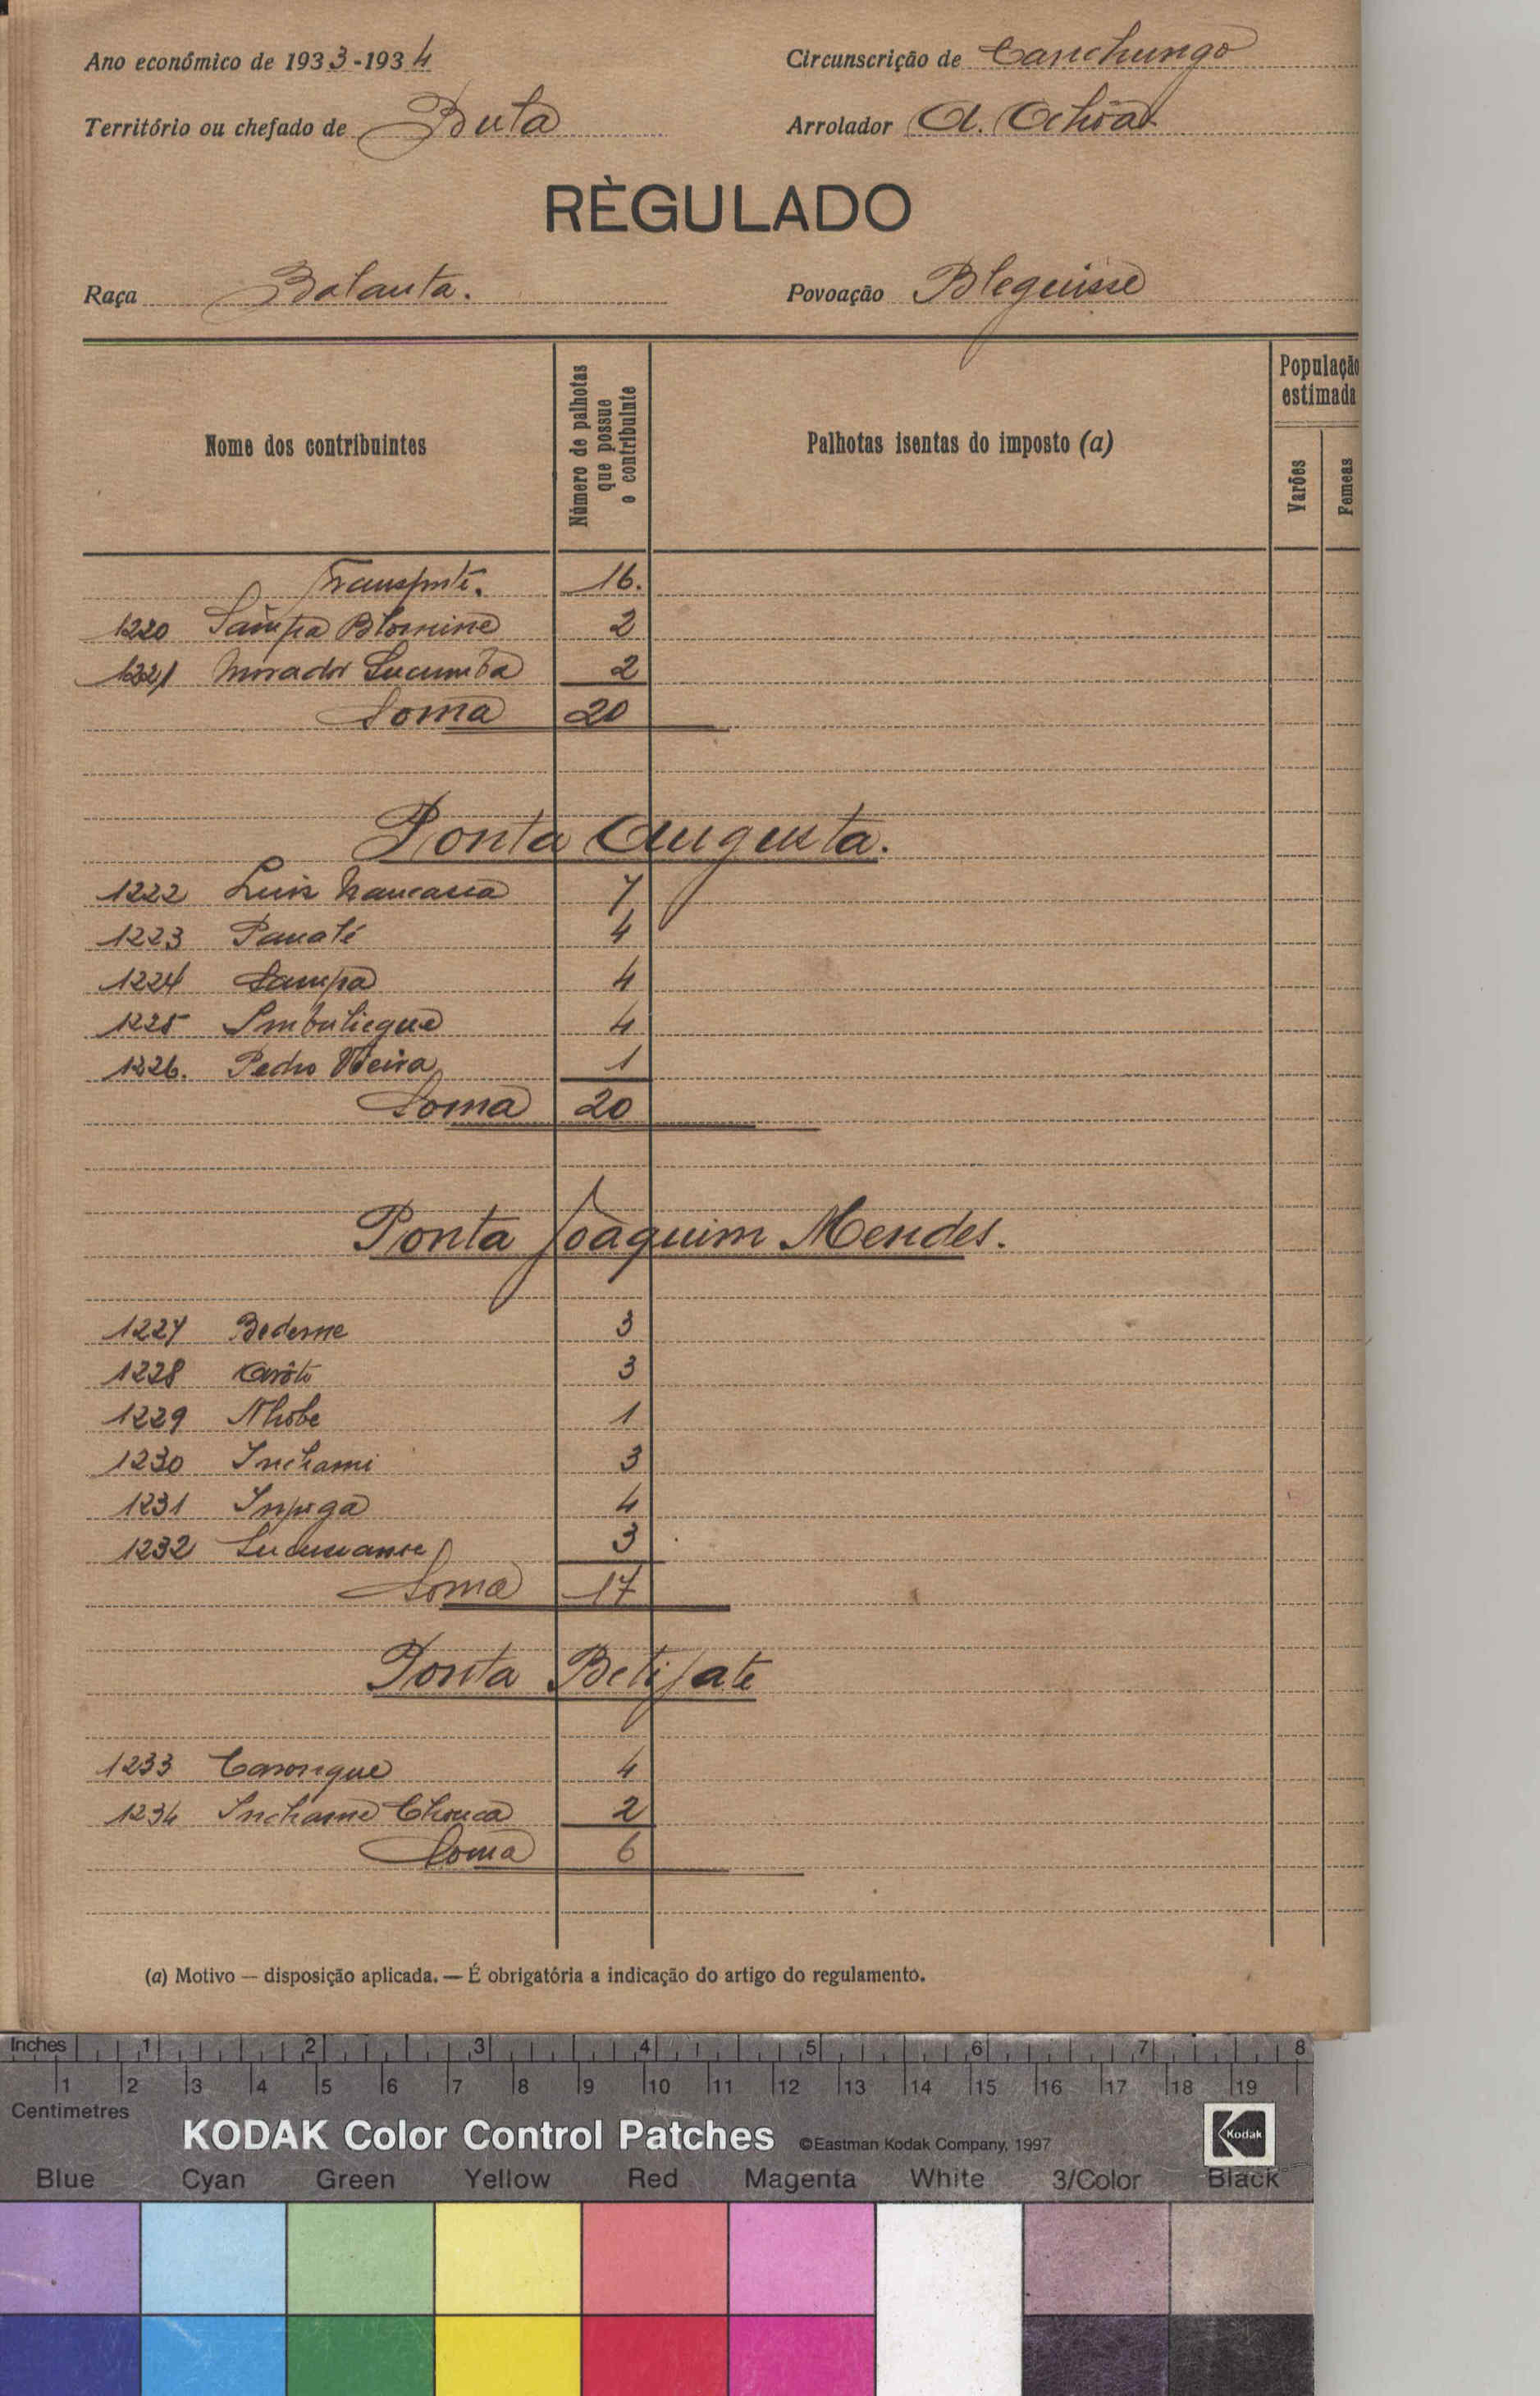 Ano económico de 1933-1934
Circunscrição de Canchungo
Território ou chefado de Buta
Arrolador A. Ochôa
RÈGULADO
Raça Balanta.
Povoação Blequisse
Nome dos contribuintes
Número de palhotas que possue o contribuinte
Palhotas isentas do imposto (a)
População estimada
Varões
Femeas
Transporte. 16.
1220 Sampa Blomine 2
1221 Morador Sucumba 2
Soma 20
Ponta Augusta.
1222 Luis 7
1223 Panalé 4
1224 Sampa 4
1225 Imbuliegue 4
1226. Pedro Vieira 1
Soma 20
Ponta Joaquim Mendes.
1227 Bedeme 3
1228 3
1229 Nhobe 1
1230 Inchami 3
1231 4
1232 3
Soma 17
Ponta Betifate
1233 Carongue 4
1234 Inchame Chouca 2
Soma 6
(a) Motivo — disposição aplicada. — É obrigatória a indicação do artigo do regulamento.
Inches 1 2 3 4 5 6 7 8
1 2 3 4 5 6 7 8 9 10 11 12 13 14 15 16 17 18 19
Centimetres
KODAK Color Control Patches ©Eastman Kodak Company, 1997 Kodak
Blue Cyan Green Yellow Red Magenta White 3/Color Black